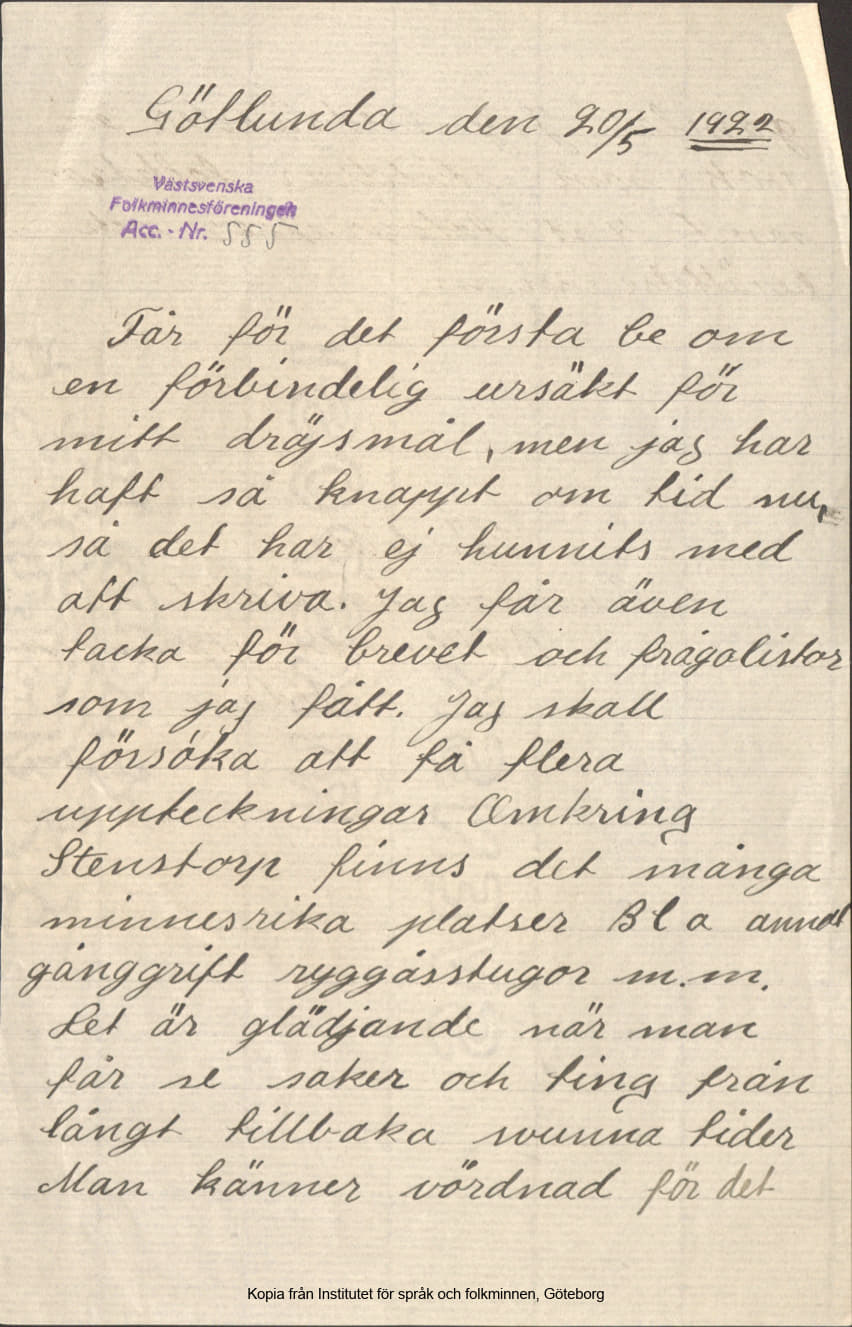 Götlunda den 20/5 1922
Västsvenska
Folkminnesföreningen
Acc. - Nr. 555
Får för det första be om
en förbindelig ursäkt för
mitt dröjsmål, men jag har
haft så knappt om tid nu,
så det har ej hunnits med
att skriva. Jag får även
tacka för brevet och frågolistor
som jag fått. Jag skall
försöka att få flera
uppteckningar Omkring
Stenstorp finns det många
minnesrika platser Bl a annat
gånggrift ryggåsstugor m.m.
Det är glädjande när man
får se saker och ting från
långt tillbaka svunna tider
Man känner vördnad för det
Kopia från Institutet för språk och folkminnen, Göteborg